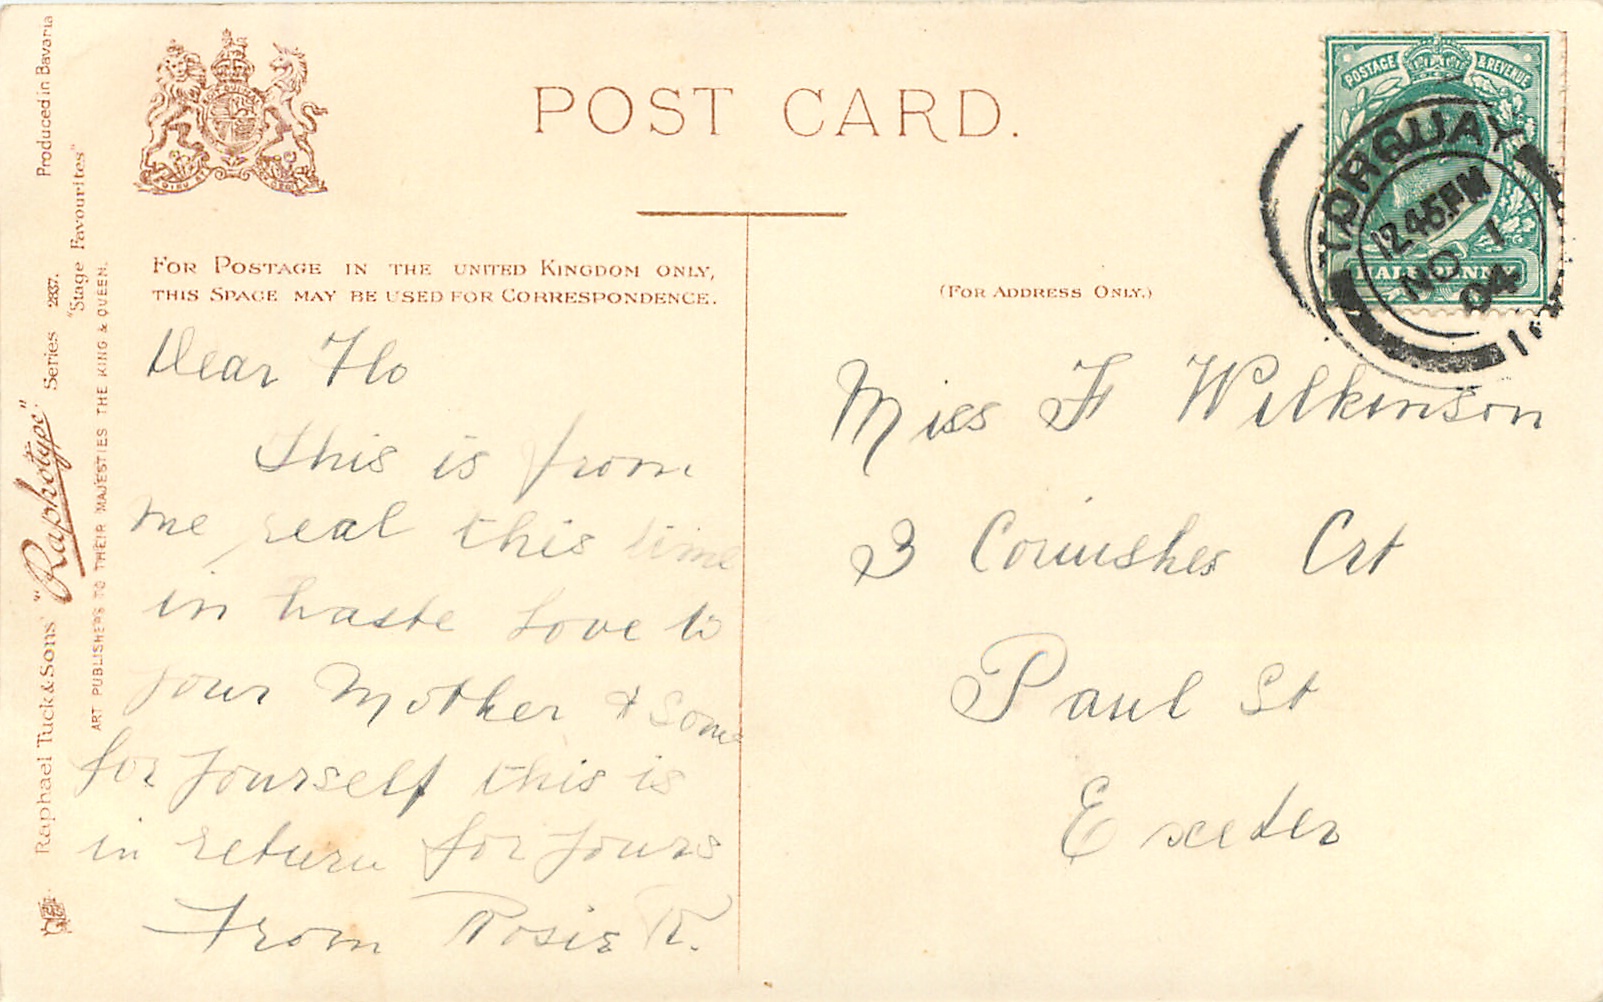 POST CARD.
FOR POSTAGE IN THE UNITED KINGDOM ONLY,
THIS SPACE MAY BE USED FOR CORRESPONDENCE.
(FOR ADDRESS ONLY.)
Dear Flo
This is from
me real this time
in haste love to
your Mother & some
for yourself this is
in return for yours
From Rosie R.
Miss F Wilkinson
3 Cornishes Crt
Paul St
Exeter
POSTAGE & REVENUE
HALFPENNY
TORQUAY
12.45PM
NO 1
04
Raphael Tuck & Sons' "Raphotype" Series 2837.
"Stage Favourites"
Produced in Bavaria
ART PUBLISHERS TO THEIR MAJESTIES THE KING & QUEEN.